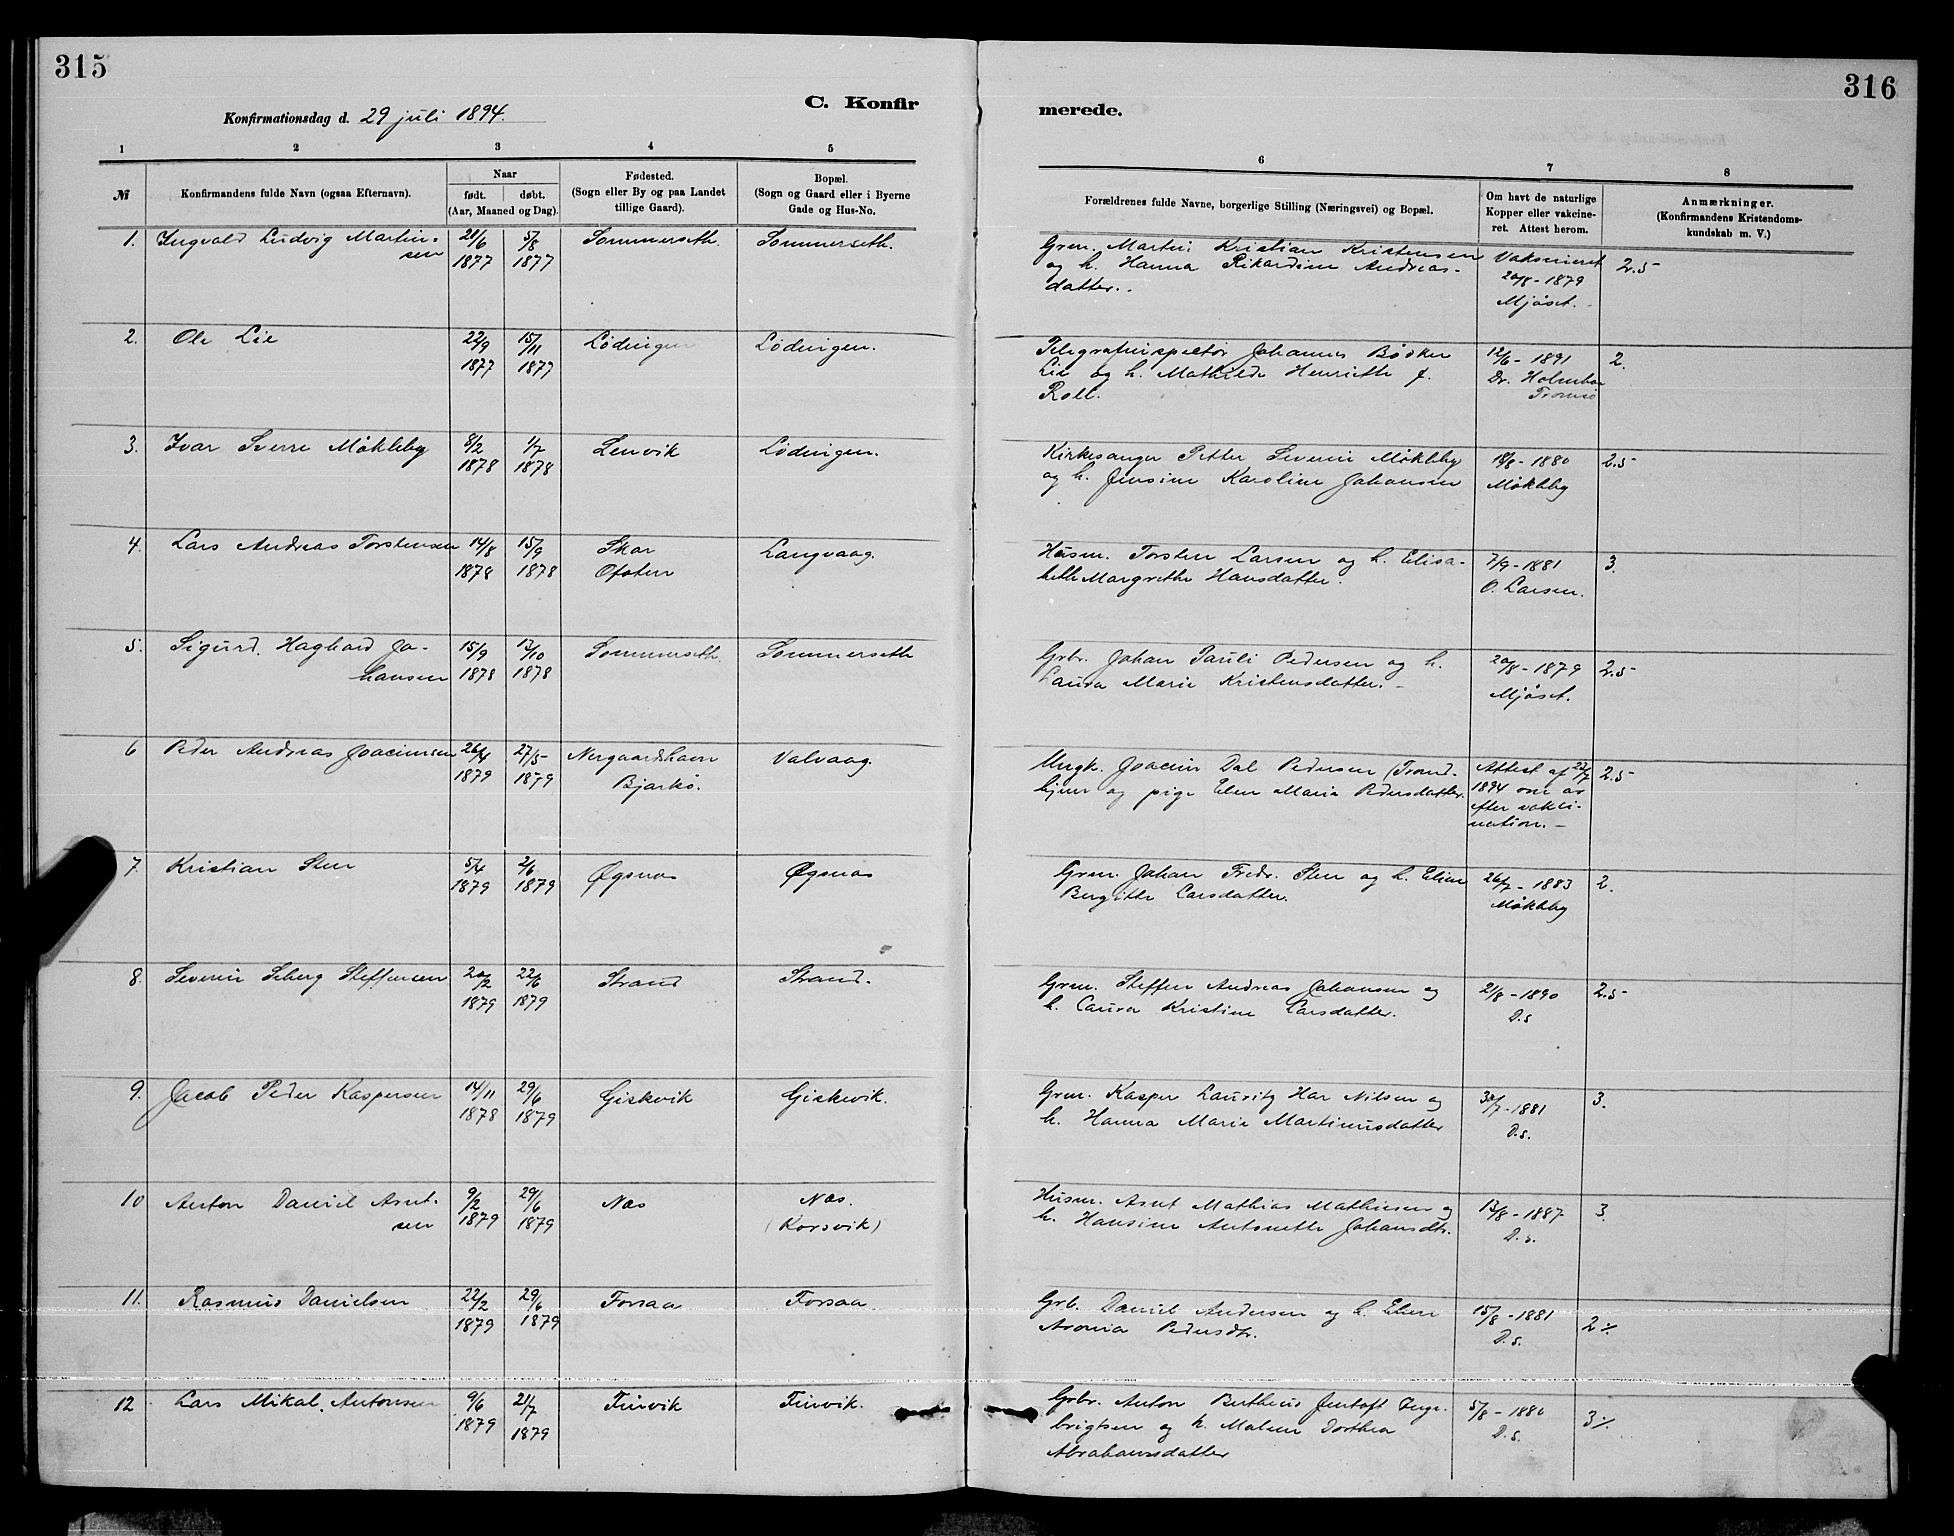 315
316
C. Konfir
merede.
Konfirmationsdag d. 29 juli 1894.
1 2 3 4 5 6 7 8
№
Konfirmandens fulde Navn (ogsaa Efternavn).
Naar
født. døbt.
(Aar, Maaned og Dag).
Fødested.
(Sogn eller By og paa Landet
tillige Gaard).
Bopæl.
(Sogn og Gaard eller i Byerne
Gade og Hus-No.
Forældrenes fulde Navne, borgerlige Stilling (Næringsvei) og Bopæl.
Om havt de naturlige
Kopper eller vakcine-
ret. Attest herom.
Anmærkninger.
(Konfirmandens Kristendoms-
kundskab m. V.)
1. Ingvald Ludvig Martin- 21/6 5/8 Sommerseth. Sommerseth. Grm. Martin Kristian Kristensen Vaksineret 2.5
sen 1877 1877 og h. Hanna Rikardine Andreas- 20/8 - 1879
datter. Mjöset.
2. Ole Lie 22/9 15/11 Lødingen Lødingen. Telegrafinspektör Johannes Böcker 12/6 - 1891 2.
1877 1877 Lie og h. Mathilde Henriette f. Dr. Holmboe
Roll. Tromsö
3. Ivar Sverre Møkleby 8/2 1/7 Lenvik Lødingen. Kirkesanger Petter Severin Møkleby 18/8 - 1880 2.5
1878 1878 og h. Jensine Karoline Johansen Møkleby
4. Lars Andreas Torstensen 14/8 15/9 Skar Langvaag. Husm. Torsten Larsen og h. Elisa- 7/9 - 1881 3.
1878 1878 Ofoten beth Margrethe Hansdatter. O. Larsen.
5. Sigurd Hagbard Jo- 15/9 13/10 Sommerseth. Sommerseth Grbr. Johan Pauli Pedersen og h. 20/8 - 1879 2.5
hansen 1878 1878 Laura Marie Kristensdatter. Mjöset.
6 Peder Andreas Joacimsen 26/4 27/5 Nergaardshavn Valvaag. Ungk. Joacim Dal Pedersen (Trond- Attest af 22/7 2.5
1879 1879 Bjarkö. hjem og pige Elen Maria Pedersdatter. 1894 om ar
efter vakci-
nation.
7. Kristian Sten 5/4 2/6 Øgsnæs Øgsnæs Grm. Johan Fredr. Sten og h. Eline 26/7 - 1883 2.
1879 1879 Bergitte Larsdatter. Møkleby
8. Severin Seberg Steffensen 20/2 22/6 Strand Strand. Grm. Steffen Andreas Johansen og 21/8 - 1890 2.5
1879 1879 h. Laura Kristine Larsdatter. D.s
9. Jacob Peder Kaspersen 14/11 29/6 Giskevik Giskevik. Grm. Kasper Lauritz Har Nilsen og 30/7 - 1881 3.
1878 1879 h. Hanna Marie Martinusdatter D.s.
10 Anton Daniel Arnt- 9/2 29/6 Næs Næs. Husm. Arnt Mathias Mathiesen og 13/8 - 1887 3.
sen 1879 1879 (Korsvik) h. Hansine Antonette Johansdtr. D.s.
11. Rasmus Danielsen 22/2 29/6 Forsaa Forsaa Grb. Daniel Andersen og h. Elen 15/8 - 1881 2 ./.
1879 1879 Aronia Pedersdtr. D.s.
12 Lars Mikal Antonsen 9/6 21/7 Finvik Finvik. Grbr. Anton Bertheus Jentoft Inge- 5/8 - 1880 3 ./.
1879 1879 brigtsen og h. Malene Dorthea D.s.
Abrahamsdatter